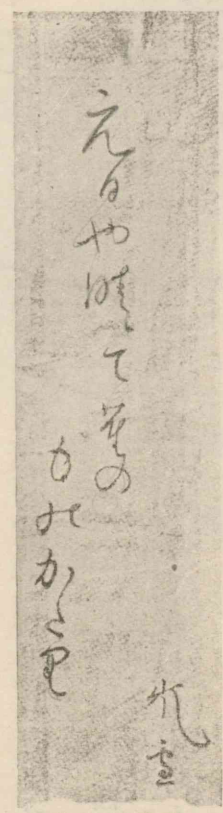 元日や晴て雀の
ものかたり
嵐雪